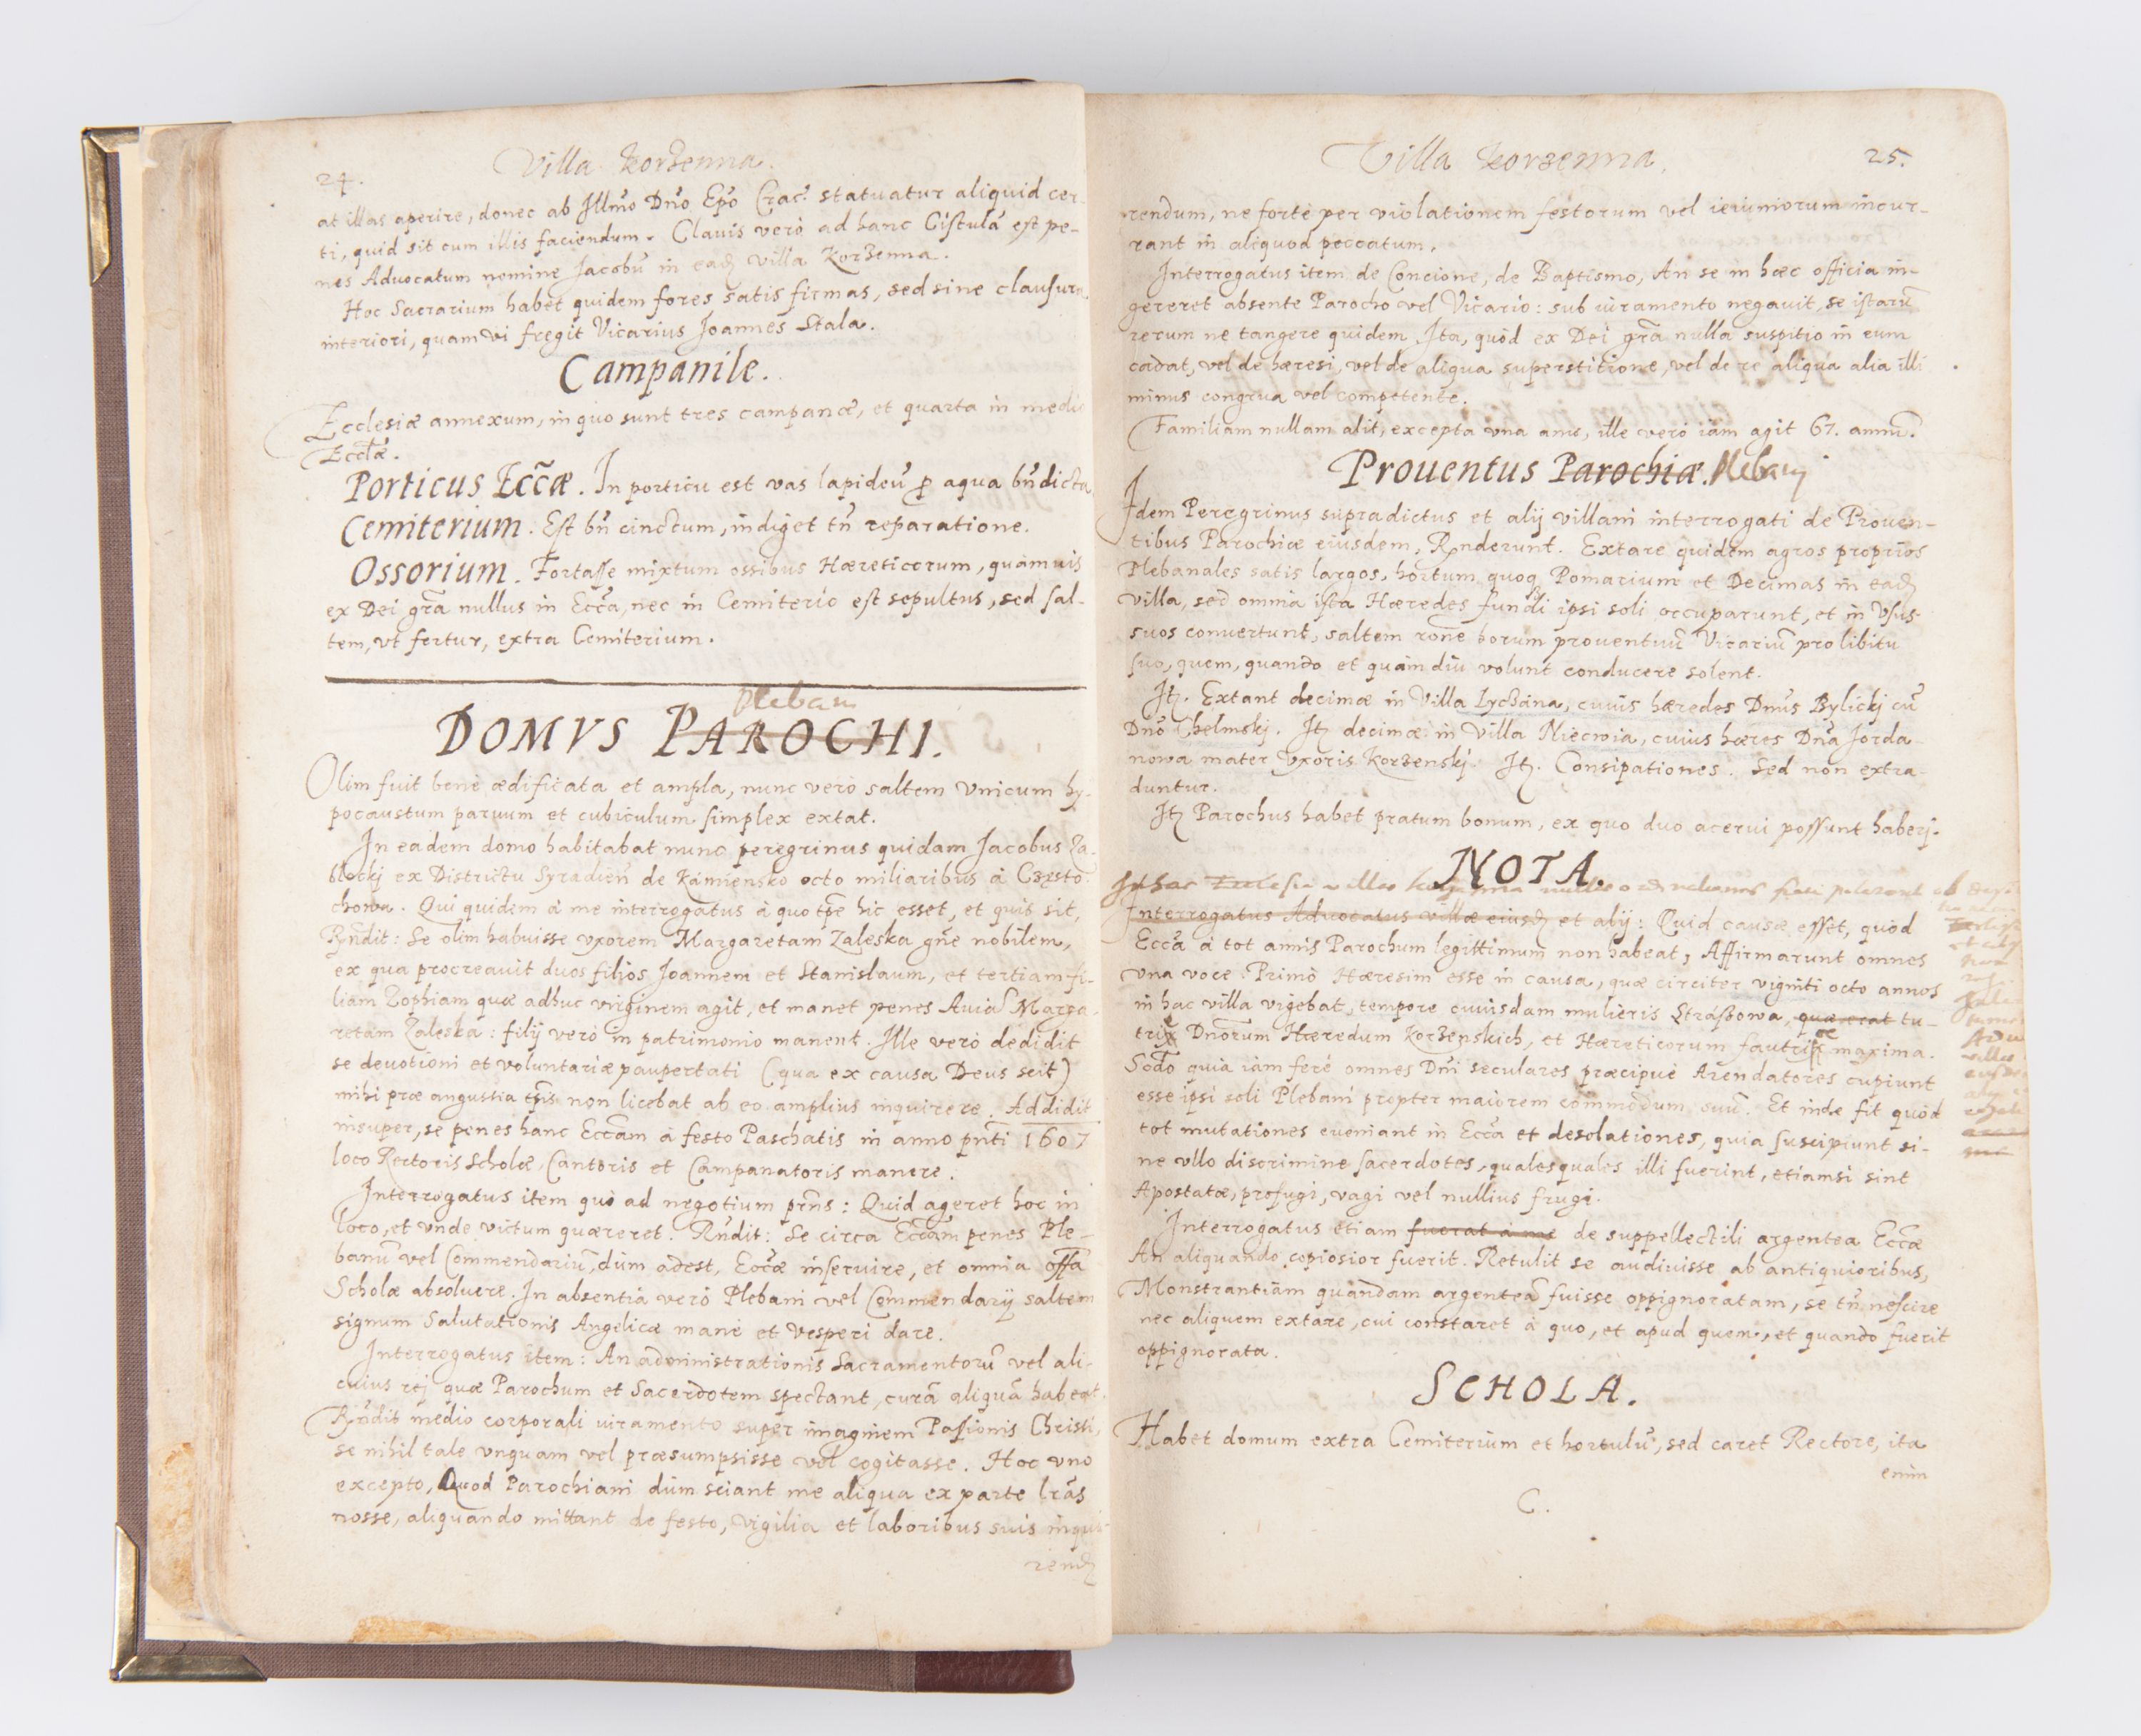 24.
Villa Korzenna.
at illas aperire, donec ab Illmo Dno Epo Crac. statuatur aliquid cer-
ti, quid sit cum illis faciendum. Clauis verò ad hanc Cistulã est pe-
nes Aduocatum nomine Jacobũ in eadẽ villa Korzenna.
Hoc Sacrarium habet quidem fores satis firmas, sed sine clausura
interiori, quam vi fregit Vicarius Joannes Stala.
Campanile.
Ecclesiæ annexum, in quo sunt tres campanæ, et quarta in medio
Eccłæ.
Porticus Eccæ. In porticu est vas lapideũ p aqua bñdicta
Cemiterium. Est bñ cinctum, indiget tñ reparatione.
Ossorium. Fortasse mixtum ossibus Hæreticorum, quamuis
ex Dei gřa nullus in Eccã, nec in Cemiterio est sepultus, sed sal-
tem, vt fertur, extra Cemiterium.
Plebani
DOMVS PAROCHI.
Olim fuit benè ædificata et ampla, nunc verò saltem vnicum hy-
pocaustum paruum et cubiculum simplex extat.
In eadem domo habitabat nunc peregrinus quidam Jacobus Za-
blockj ex Districtu Syradien̄ de Kamiensko octo miliaribus à Czẹsto-
chowa. Qui quidem à me interrogatus à quo tp̃e hic esset, et quis sit,
Rñdit: Se olim habuisse vxorem Margaretam Zaleska gñe nobilem,
ex qua procreauit duos filios Joannem et Stanislaum, et tertiam fi-
liam Zophiam quæ adhuc virginem agit, et manet penes Auiã Marga-
retam Zaleska: filij verò in patrimonio manent. Ille verò dedidit
se deuotioni et voluntariæ paupertati (qua ex causa Deus scit)
mihi præ angustia tp̃is non licebat ab eo amplius inquirere. Addidit
insuper, se penes hanc Eccãm à festo Paschatis in anno pñti 1607
loco Rectoris Scholæ, Cantoris et Campanatoris manere.
Interrogatus item quò ad negotium pr̃ns: Quid ageret hoc in
loco, et vnde victum quæreret. Rñdit: Se circa Eccãm penes Ple-
banũ vel Commendariũ, dùm adest, Eccæ inseruire, et omnia offa
Scholæ absoluere. In absentia verò Plebani vel Commendarij saltem
signum Salutationis Angelicæ manè et vesperi dare.
Interrogatus item: An administrationis Sacramentorũ vel ali-
cuius rej quæ Parochum et Sacerdotem spectant, curã aliquã habeat.
Rñdit medio corporali iuramento super imaginem Passionis Christi,
se nihil tale vnquam vel præsumpsisse vel cogitasse. Hoc vno
excepto, Quod Parochiani dùm sciant me aliqua ex parte lr̃as
nosse, aliquando mittant de festo, vigilia et laboribus suis inqui-
rendẽ
Villa Korzenna.
25.
rendum, ne fortè per violationem festorum vel ieiuniorum incur-
rant in aliquod peccatum.
Interrogatus item de Concione, de Baptismo, An se in hæc officia in-
gereret absente Parocho vel Vicario: sub iuramento negauit, se istarũ
rerum ne tangere quidem. Ita, quòd ex Dei gřa nulla suspitio in eum
cadat, vel de hæresi, vel de aliqua superstitione, vel de re aliqua alia illi
minus congrua vel competente.
Familiam nullam alit, excepta vna anu, ille verò iàm agit 67. annũ.
Prouentus Parochiæ. Plebanj
Idem Peregrinus supradictus et alij villani interrogati de Prouen-
tibus Parochiæ eiusdem, Rñnderunt. Extare quidem agros proprios
Plebanales satis largos, hortum quoq Pomarium et Decimas in eadẽ
villa, sed omnia ista Hæredes fundi ipsi soli occuparunt, et in vsus
suos conuertunt, saltem rõne horum prouentuũ Vicariũ pro libitu
suo, quem, quando et quàm diu volunt conducere solent.
Itẽ. Extant decimæ in Villa Lyczana, cuius hæredes Dnũs Bylickj cũ
Dnõ Chelmskj. Itẽ decimæ in Villa Niecwia, cuius hæres Dnã Jorda-
nowa mater vxoris Korzenskj. Itẽ. Consipationes. Sed non extra-
duntur.
Itẽ Parochus habet pratum bonum, ex quo duo acerui possunt haberj.
NOTA.
In hac Ecclesia villæ
Interrogatus Aduocatus villæ eiusdẽ et alij: Quid causæ esset, quòd
Eccã à tot annis Parochum legittimum non habeat, Affirmarunt omnes
vna voce. Primò Hæresim esse in causa, quæ circiter viginti octo annos
in hac villa vigebat, tempore cuiusdam mulieris Straszowa, quæ erat tu-
trix Dnõrum Hæredum Korzenskich, et Hæreticorum fautrix maxima.
Sẽdo quia iàm ferè omnes Dnĩ seculares præcipuè Arendatores cupiunt
esse ipsi soli Plebani propter maiorem commodum suũ. Et inde fit quòd
tot mutationes eueniant in Eccã et desolationes, quia suscipiunt si-
ne vllo discrimine sacerdotes, qualesquales illi fuerint, etiamsi sint
Apostatæ, profugi, vagi vel nullius frugi.
Interrogatus etiam fuerat à me de suppellectili argentea Eccæ
An aliquando copiosior fuerit. Retulit se audiuisse ab antiquioribus,
Monstrantiam quandam argenteã fuisse oppignoratam, se tñ nescire
nec aliquem extare, cui constaret à quo, et apud quem, et quando fuerit
oppignorata.
SCHOLA.
Habet domum extra Cemiterium et hortulũ, sed caret Rectore, ita
enim
C.